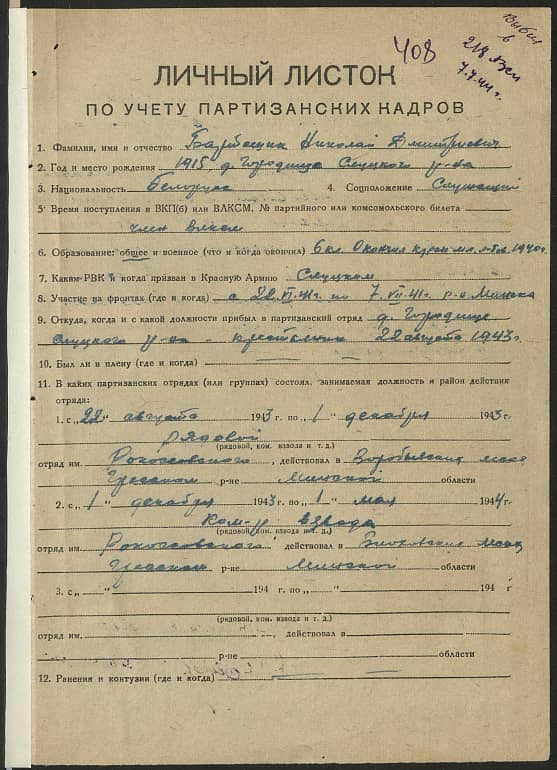 408
Выбыл
в
7.7.44 г.
ЛИЧНЫЙ ЛИСТОК
ПО УЧЕТУ ПАРТИЗАНСКИХ КАДРОВ
1. Фамилия, имя и отчество Николай Дмитриевич
2. Год и место рождения 1915 д. Городище Слуцкого р-на
3. Национальность Белорус 4. Соцположение Служащий
5 Время поступления в ВКП(б) или ВЛКСМ, № партийного или комсомольского билета
член ВЛКСМ
6. Образование: общее и военное (что и когда окончил) 6 кл. Окончил 1940 г.
7. Каким РВК и когда призван в Красную Армию Слуцком
8. Участие на фронтах (где и когда) с 22.VI.41г. по 7.VII.41г. р-н Минска
9. Откуда, когда и с какой должности прибыл в партизанский отряд д. Городище
Слуцкого р-на - крестьянин 22 августа 1943 г.
10. Был ли в плену (где и когда) —
11. В каких партизанских отрядах (или группах) состоял, занимаемая должность и район действия
отряда:
1. с „22" августа 1943 г. по „1" декабря 1943 г.
рядовой
(рядовой, ком. взвода и т. д.)
отряд им. Рокоссовского, действовал в
Гресском р-не Минской области
2. с „1" декабря 1943 г. по „1" мая 1944 г.
Ком-р взвода
(рядовой, ком. взвода и т. д.)
отряд им. Рокоссовского действовал в
Гресском р-не Минской области
3. с „ " 194 г. по „ " 194 г
(рядовой, ком. взвода и т. д.)
отряд им. , действовал в
р-не области
12. Ранения и контузии (где и когда) —